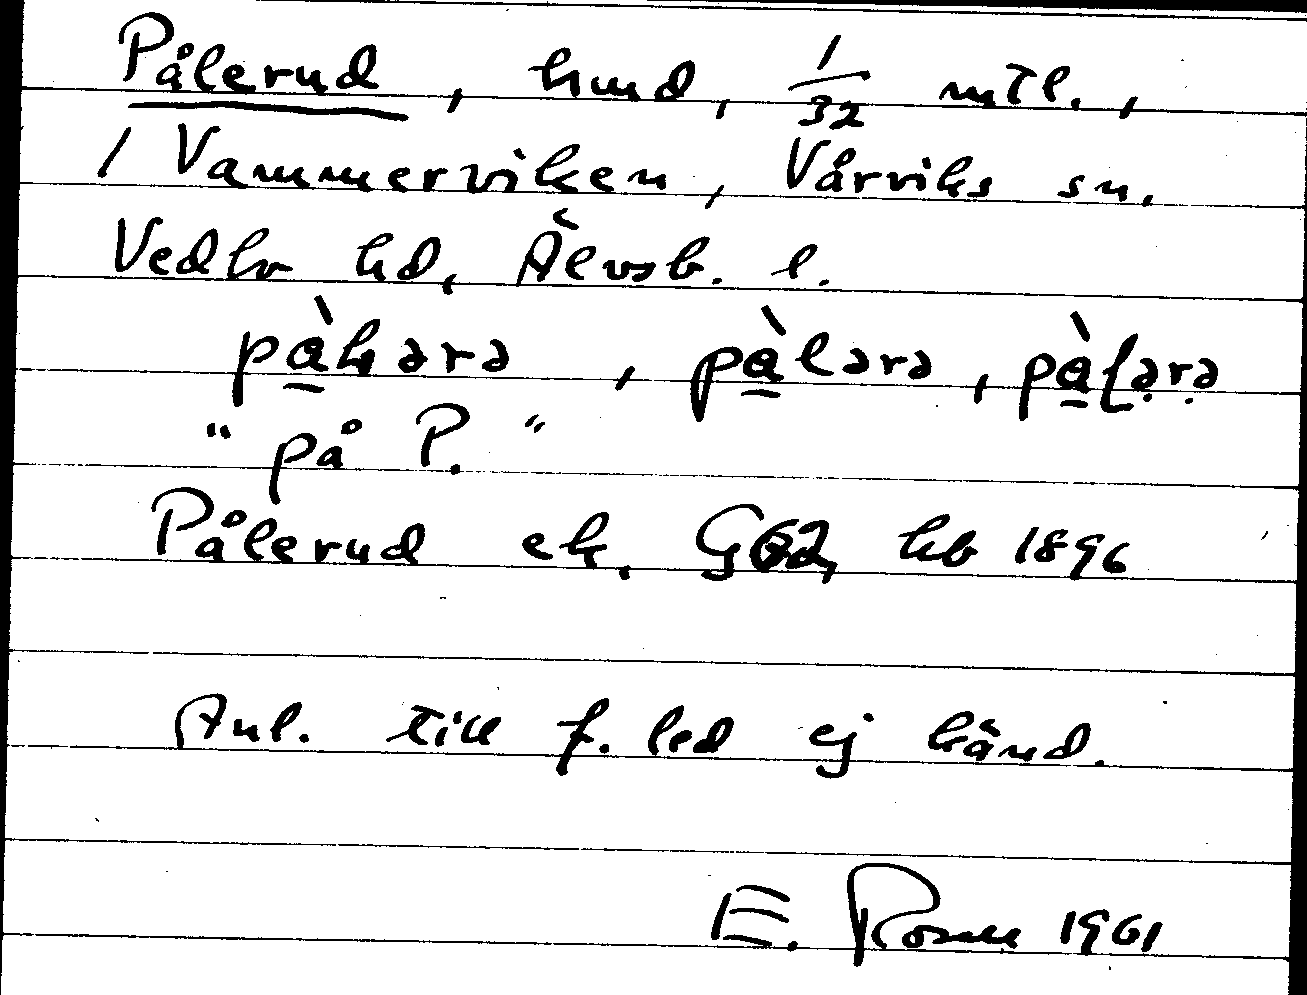 Pålerud, hmd, 1/32 mtl.,
/ Vammerviken, Vårviks sn.
Vedbo hd, Älvsb. l.
pàkərə, pàlərə, pàlərə
"på P."
Pålerud ek. G62, kb 1896
Anl. till f. led ej känd.
E. Rosell 1961